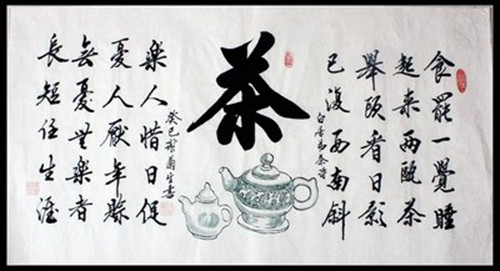 食罷一覺睡
起来两甌茶
舉頭看日影
已復西南斜
白居易茶詩
茶
樂人惜日促
憂人厭年賒
無憂無樂者
長短任生涯
癸巳
生書